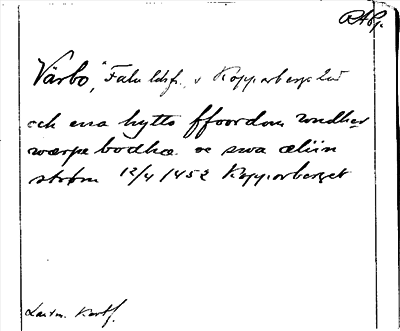 RAp.
Värbo, Falu ldsf., Kopparbergs län
och ena hytto ffoordom wndher
wærpe bodhæ oc swa æliin
strøm 12/4 1452 Kopparberget
Lantm. Kartf.